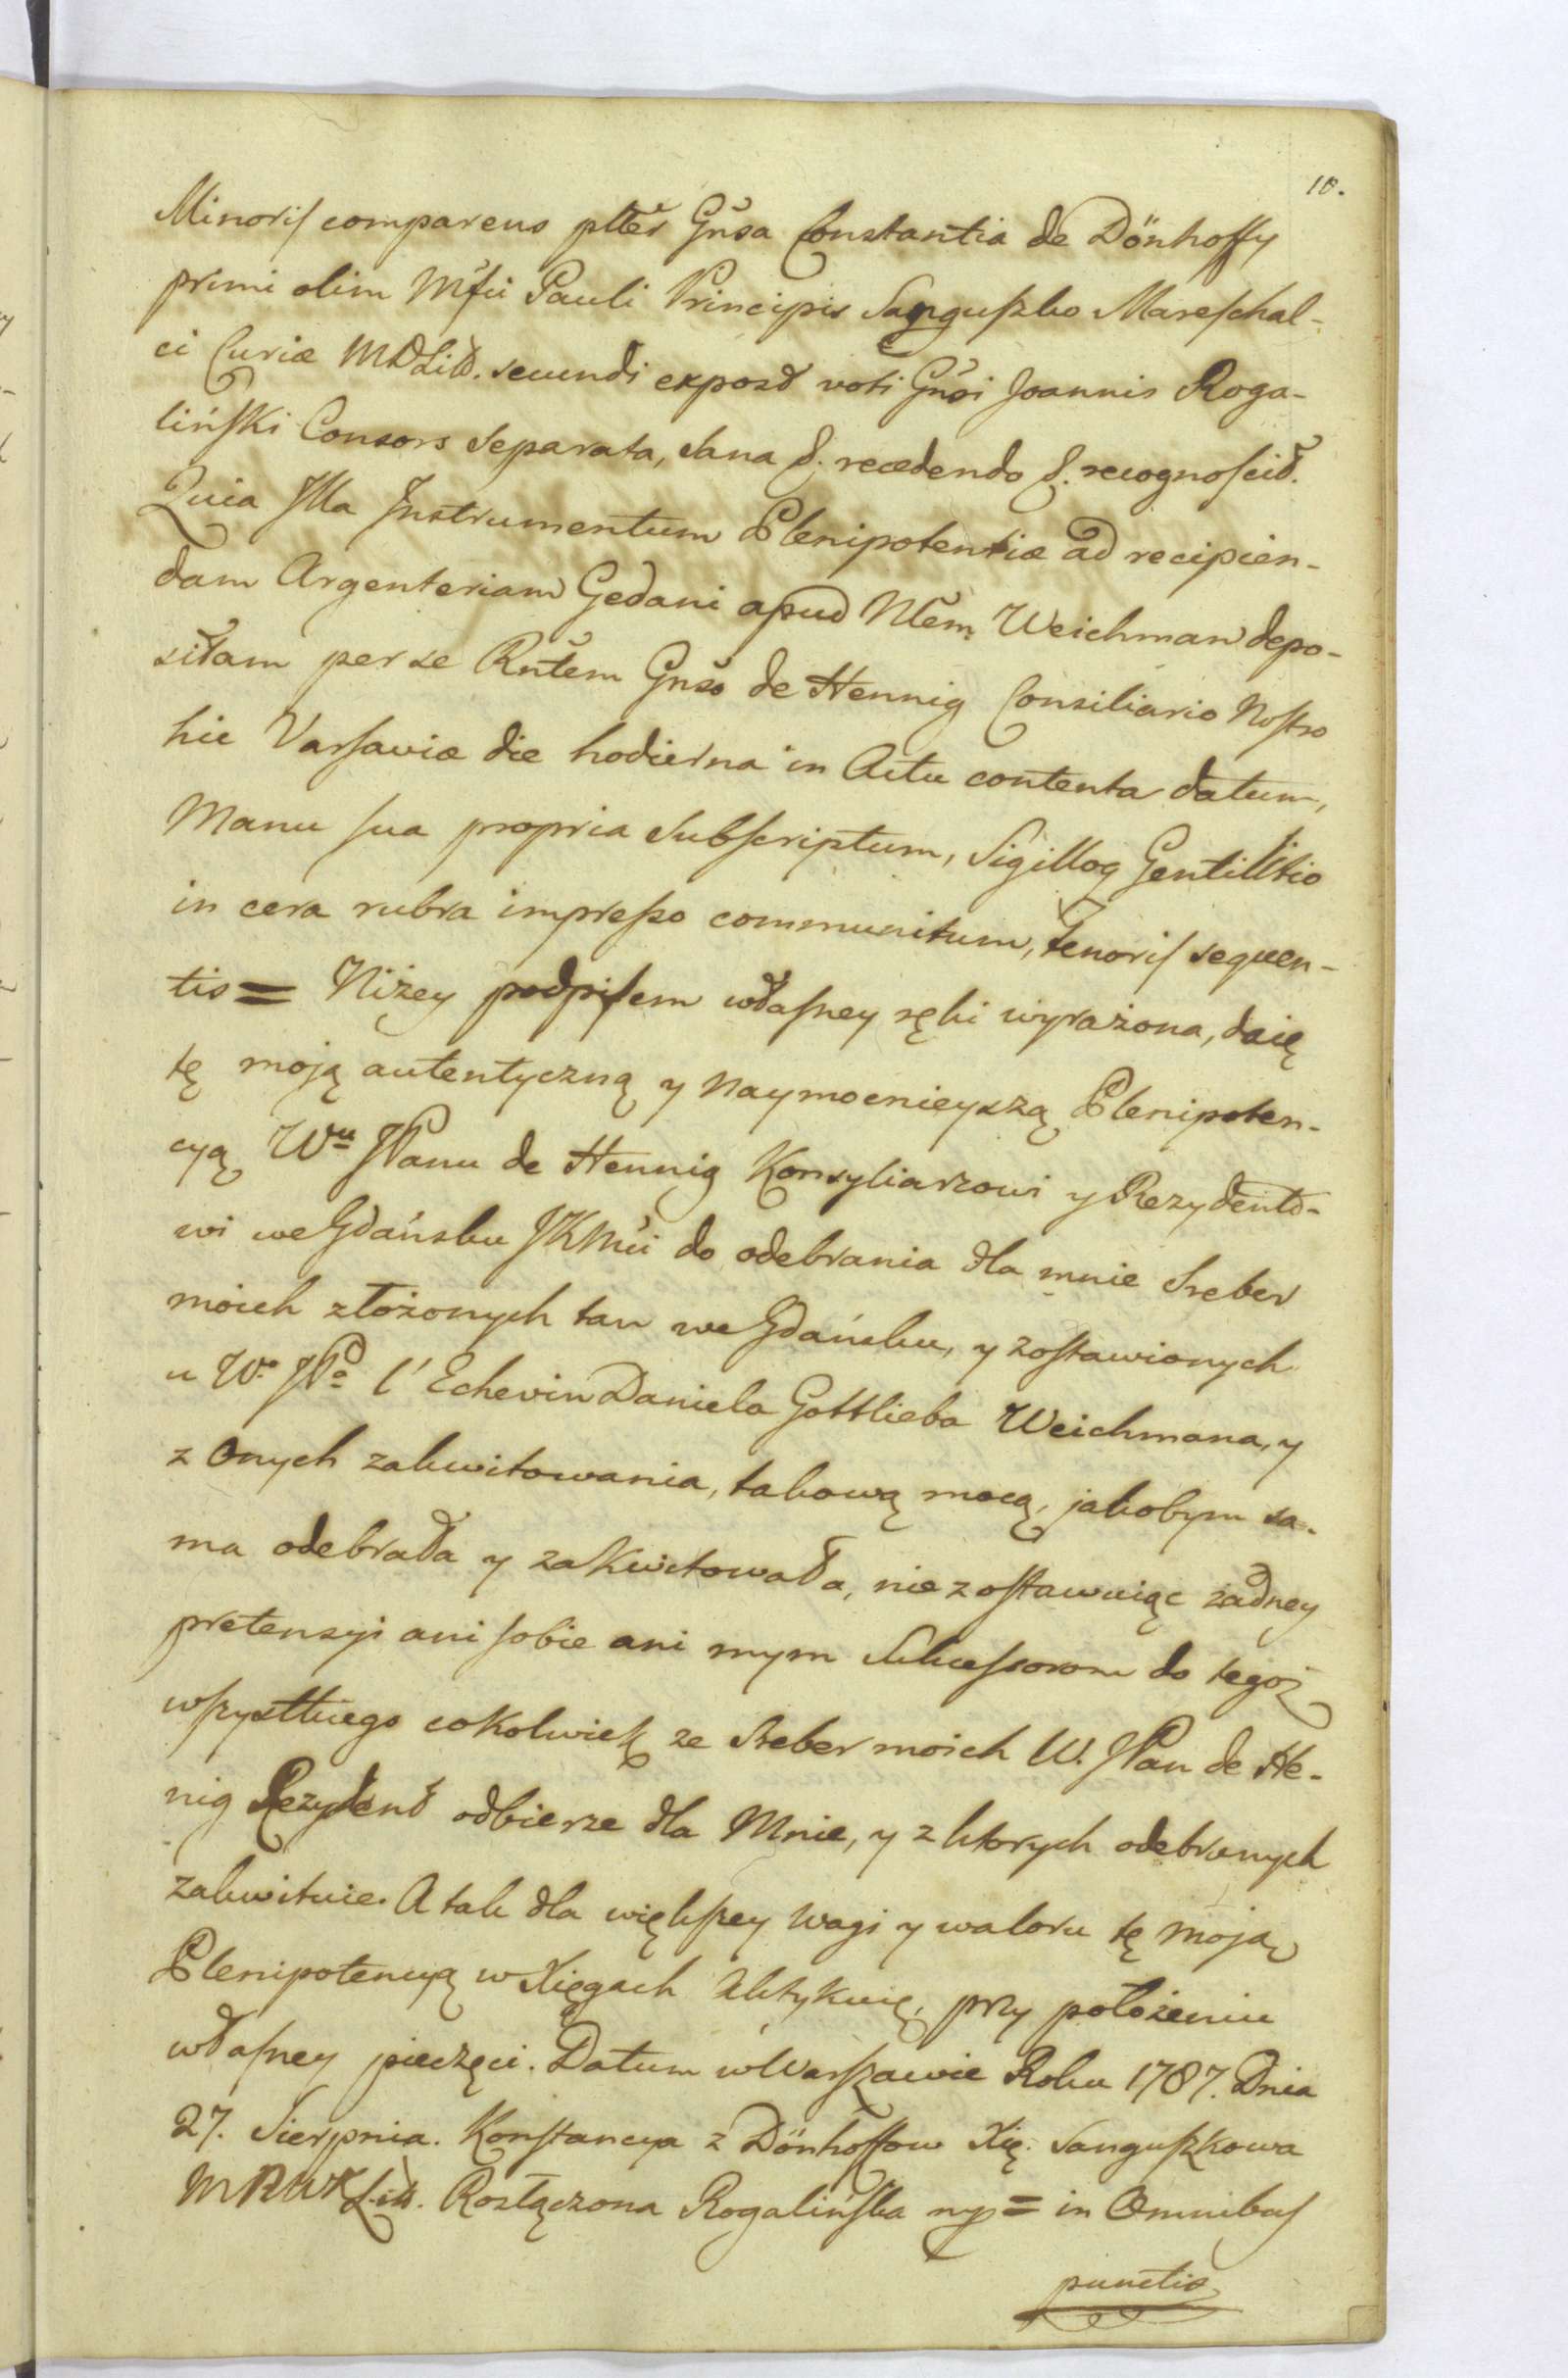 10.
Minoris comparens pltĕr Gńsa Constantia de Dönhoffy
primi olim Mfci Pauli Principis Sanguszko Mareschal-
ci Curiæ MDLitt. secundi exposd voti Gńsi Joannis Roga-
liński Consors Separata, sana &. recedendo &. recognoscid.
Quia Illa Instrumentum Plenipotentiæ ad recipien-
dam Argenteriam Gedani apud Nlem Weichman depo-
sitam per se Rńtem Gnso de Hennig Consiliario Nostro
hic Varsaviæ die hodierna in Actu contenta datum,
Manu sua propria Subscriptum, Sigilloq Gentilitio
in cera rubra impresso communitum, Tenoris sequen-
tis = Niżey podpisem własney ręki wyrażona, daię
tę moją autentyczną y Naymocnieyszą Plenipoten-
cyą Wu JPanu de Hennig Konsyliarzowi y Rezydento-
wi we Gdańsku JKMći do odebrania dla mnie Sreber
moich złożonych tam we Gdańsku, y zostawionych
u Wo JPa l'Echevin Daniela Gottlieba Weichmana, y
z Onych zakwitowania, takową mocą, jakobym sa-
ma odebrała y zakwitowała, niezostawuiąc żadney
pretensyi ani sobie ani mym Sukcessorom do tegoż
wszystkiego cokolwiek ze Sreber moich W. JPan de He-
nig Rezydent odbierze dla Mnie, y z ktorych odebranych
zakwituie. A tak dla większey Wagi y waloru tę Moją
Plenipotencyą w Xięgach Aktykuię, przy położeniu
własney pieczęci. Datum w Warszawie Roku 1787. Dnia
27. Sierpnia. Konstancya z Dönhoffow Xię: Sanguszkowa
MNWXLitt. Rozłączona Rogalińska mp = in Omnibus
punctis